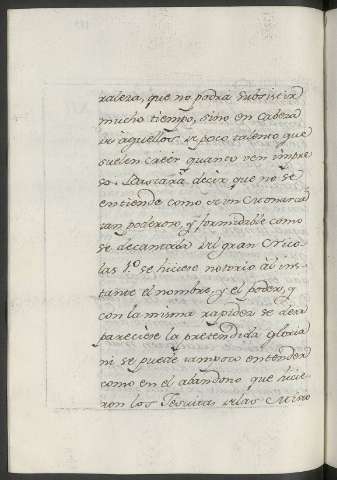 raleza, que no podrá subsistir
mucho tiempo, sino en cabeza
de aquellos de poco talento que
suelen creer quanto ven impre
so. Bastará decir que no se
entiende como de un Monarca
tan poderoso, y formidable como
se decantaba del gran Nico
las 1.º se hiciese notorio al ins
tante el nombre, y el poder, y
con la misma rapidez se desa
pareciese la pretendida gloria
ni se puede tampoco entender
como en el abandono que hicie
ron los Jesuitas de las Misio